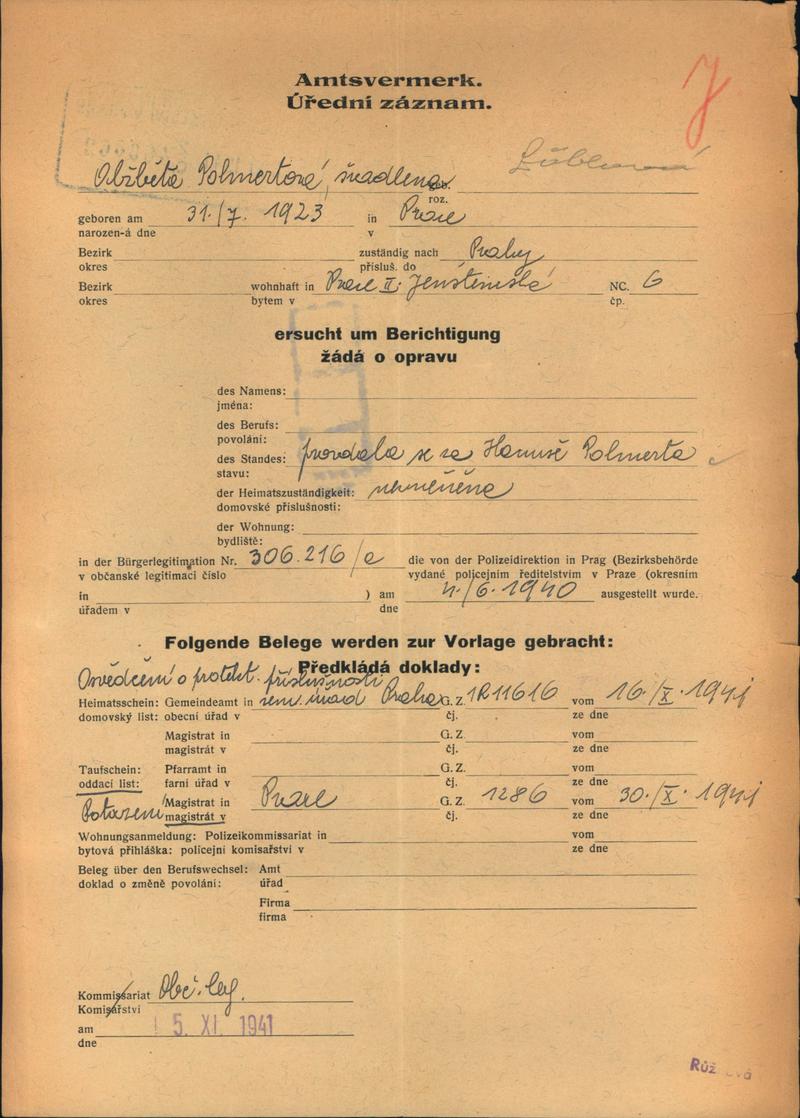 J
Amtsvermerk.
Úřední záznam.
Alžběta Polmertová, švadlena
roz.
geboren am 31./7. 1923 in Praze
narozen-á dne v
Bezirk zuständig nach Prahy
okres přísluš. do
Bezirk wohnhaft in Praze II. NC. 6
okres bytem v čp.
ersucht um Berichtigung
žádá o opravu
des Namens:
jména:
des Berufs:
povolání:
des Standes: provdala se za Hanuše Polmerta
stavu:
der Heimatszuständigkeit: nezměněna
domovské příslušnosti:
der Wohnung:
bydliště:
in der Bürgerlegitimation Nr. 306.216/e die von der Polizeidirektion in Prag (Bezirksbehörde
v občanské legitimaci číslo vydané policejním ředitelstvím v Praze (okresním
in ) am 4./6. 1940 ausgestellt wurde.
úřadem v dne
Folgende Belege werden zur Vorlage gebracht:
Předkládá doklady:
Osvědčení o protekt. příslušnosti
Heimatsschein: Gemeindeamt in zem. úřad Praha G. Z. 1R11616 vom 16./X. 1941
domovský list: obecní úřad v čj. ze dne
Magistrat in G. Z. vom
magistrát v čj. ze dne
Taufschein: Pfarramt in G. Z. vom
oddací list: farní úřad v čj. ze dne
Potvrzení Magistrat in Praze G. Z. 1286 vom 30./X. 1941
magistrát v čj. ze dne
Wohnungsanmeldung: Polizeikommissariat in vom
bytová přihláška: policejní komisařství v ze dne
Beleg über den Berufswechsel: Amt
doklad o změně povolání: úřad
Firma
firma
Kommissariat Obč. leg.
Komisařství
am 5. XI. 1941
dne